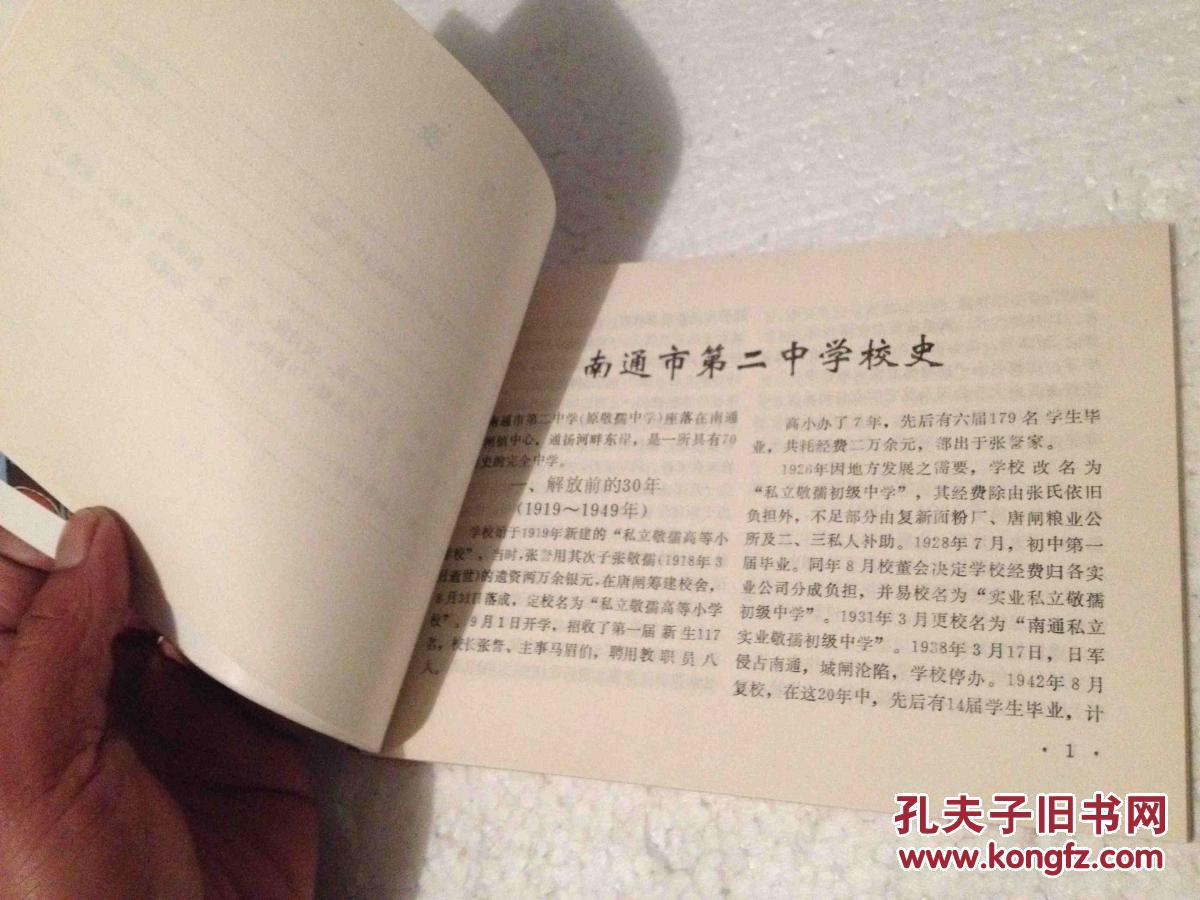 南通市第二中学校史
南通市第二中学(原敬孺中学)座落在南通
闸镇中心，通扬河畔东岸，是一所具有70
史的完全中学。
一、解放前的30年
(1919～1949年)
学校始于1919年新建的“私立敬孺高等小
学校”，当时，张詧用其次子张敬孺(1918年3
月逝世)的遗资两万余银元，在唐闸筹建校舍，
8月31日落成，定校名为“私立敬孺高等小学
校”。9月1日开学，招收了第一届新生117
名，校长张詧、主事马眉伯，聘用教职员八
人。
高小办了7年，先后有六届179名学生毕
业，共耗经费二万余元，都出于张詧家。
1926年因地方发展之需要，学校改名为
“私立敬孺初级中学”，其经费除由张氏依旧
负担外，不足部分由复新面粉厂、唐闸粮业公
所及二、三私人补助。1928年7月，初中第一
届毕业。同年8月校董会决定学校经费归各实
业公司分成负担，并易校名为“实业私立敬孺
初级中学”。1931年3月更校名为“南通私立
实业敬孺初级中学”。1938年3月17日，日军
侵占南通，城闸沦陷，学校停办。1942年8月
复校，在这20年中，先后有14届学生毕业，计
·1·
孔夫子旧书网
www.kongfz.com